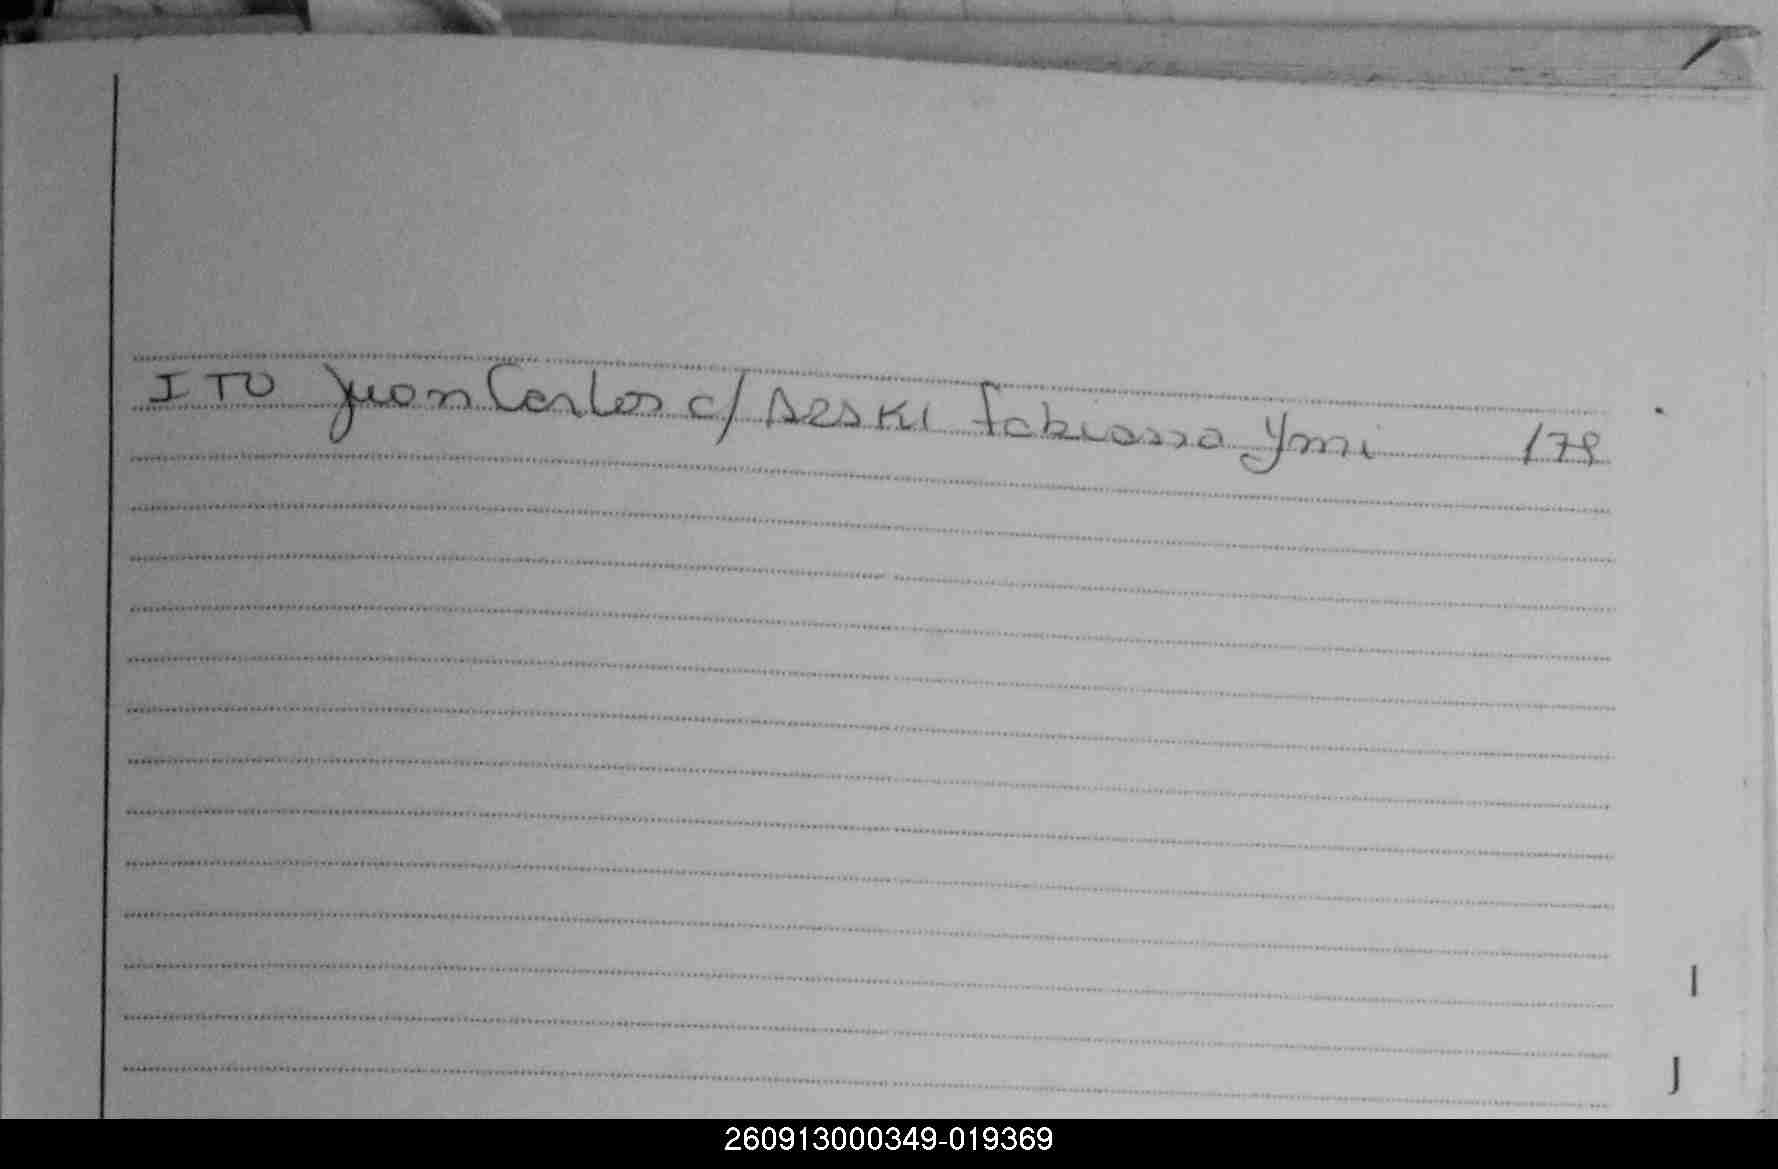 ITO Juan Carlos c/ ARSKI Fabiana Ymi 179
I
J
260913000349-019369